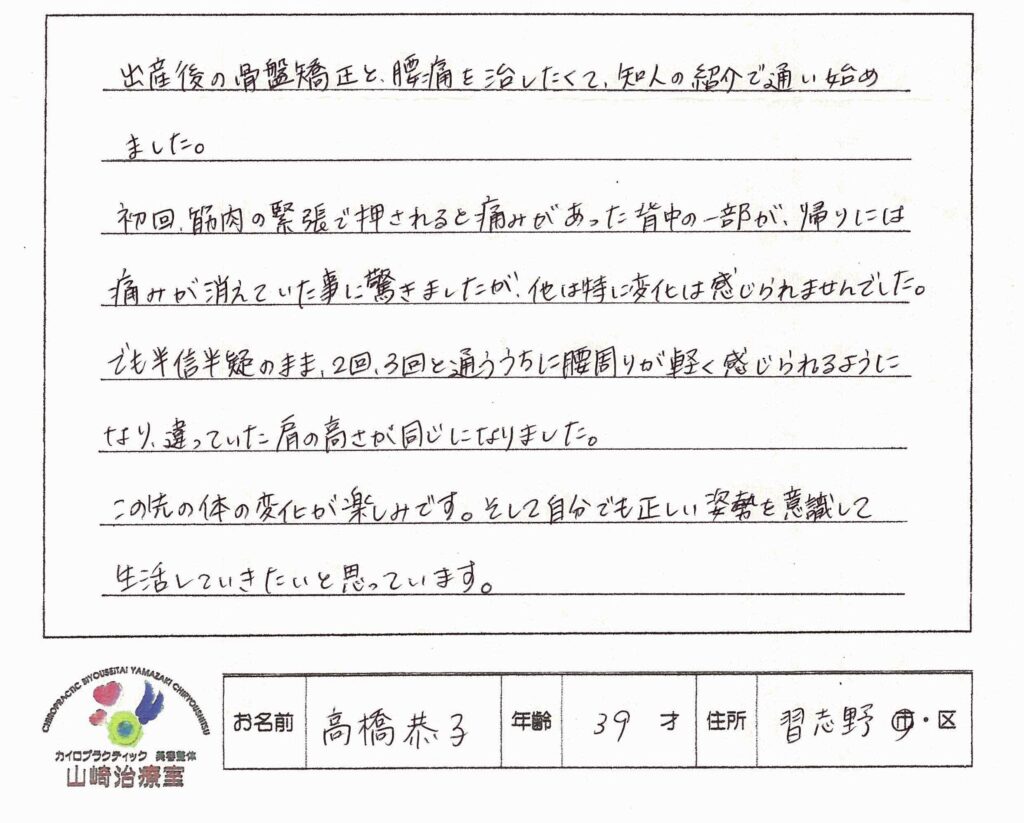 出産後の骨盤矯正と、腰痛を治したくて、知人の紹介で通い始め
ました。
初回、筋肉の緊張で押されると痛みがあった背中の一部が、帰りには
痛みが消えていた事に驚きましたが、他は特に変化は感じられませんでした。
でも半信半疑のまま、2回、3回と通ううちに腰周りが軽く感じられるように
なり、違っていた肩の高さが同じになりました。
この先の体の変化が楽しみです。そして自分でも正しい姿勢を意識して
生活していきたいと思っています。
CHIROPRACTIC BIYOUSEITAI YAMAZAKI CHIRYOUSHITSU
カイロプラクティック 美容整体
山崎治療室
お名前 高橋恭子 年齢 39 才 住所 習志野 市・区